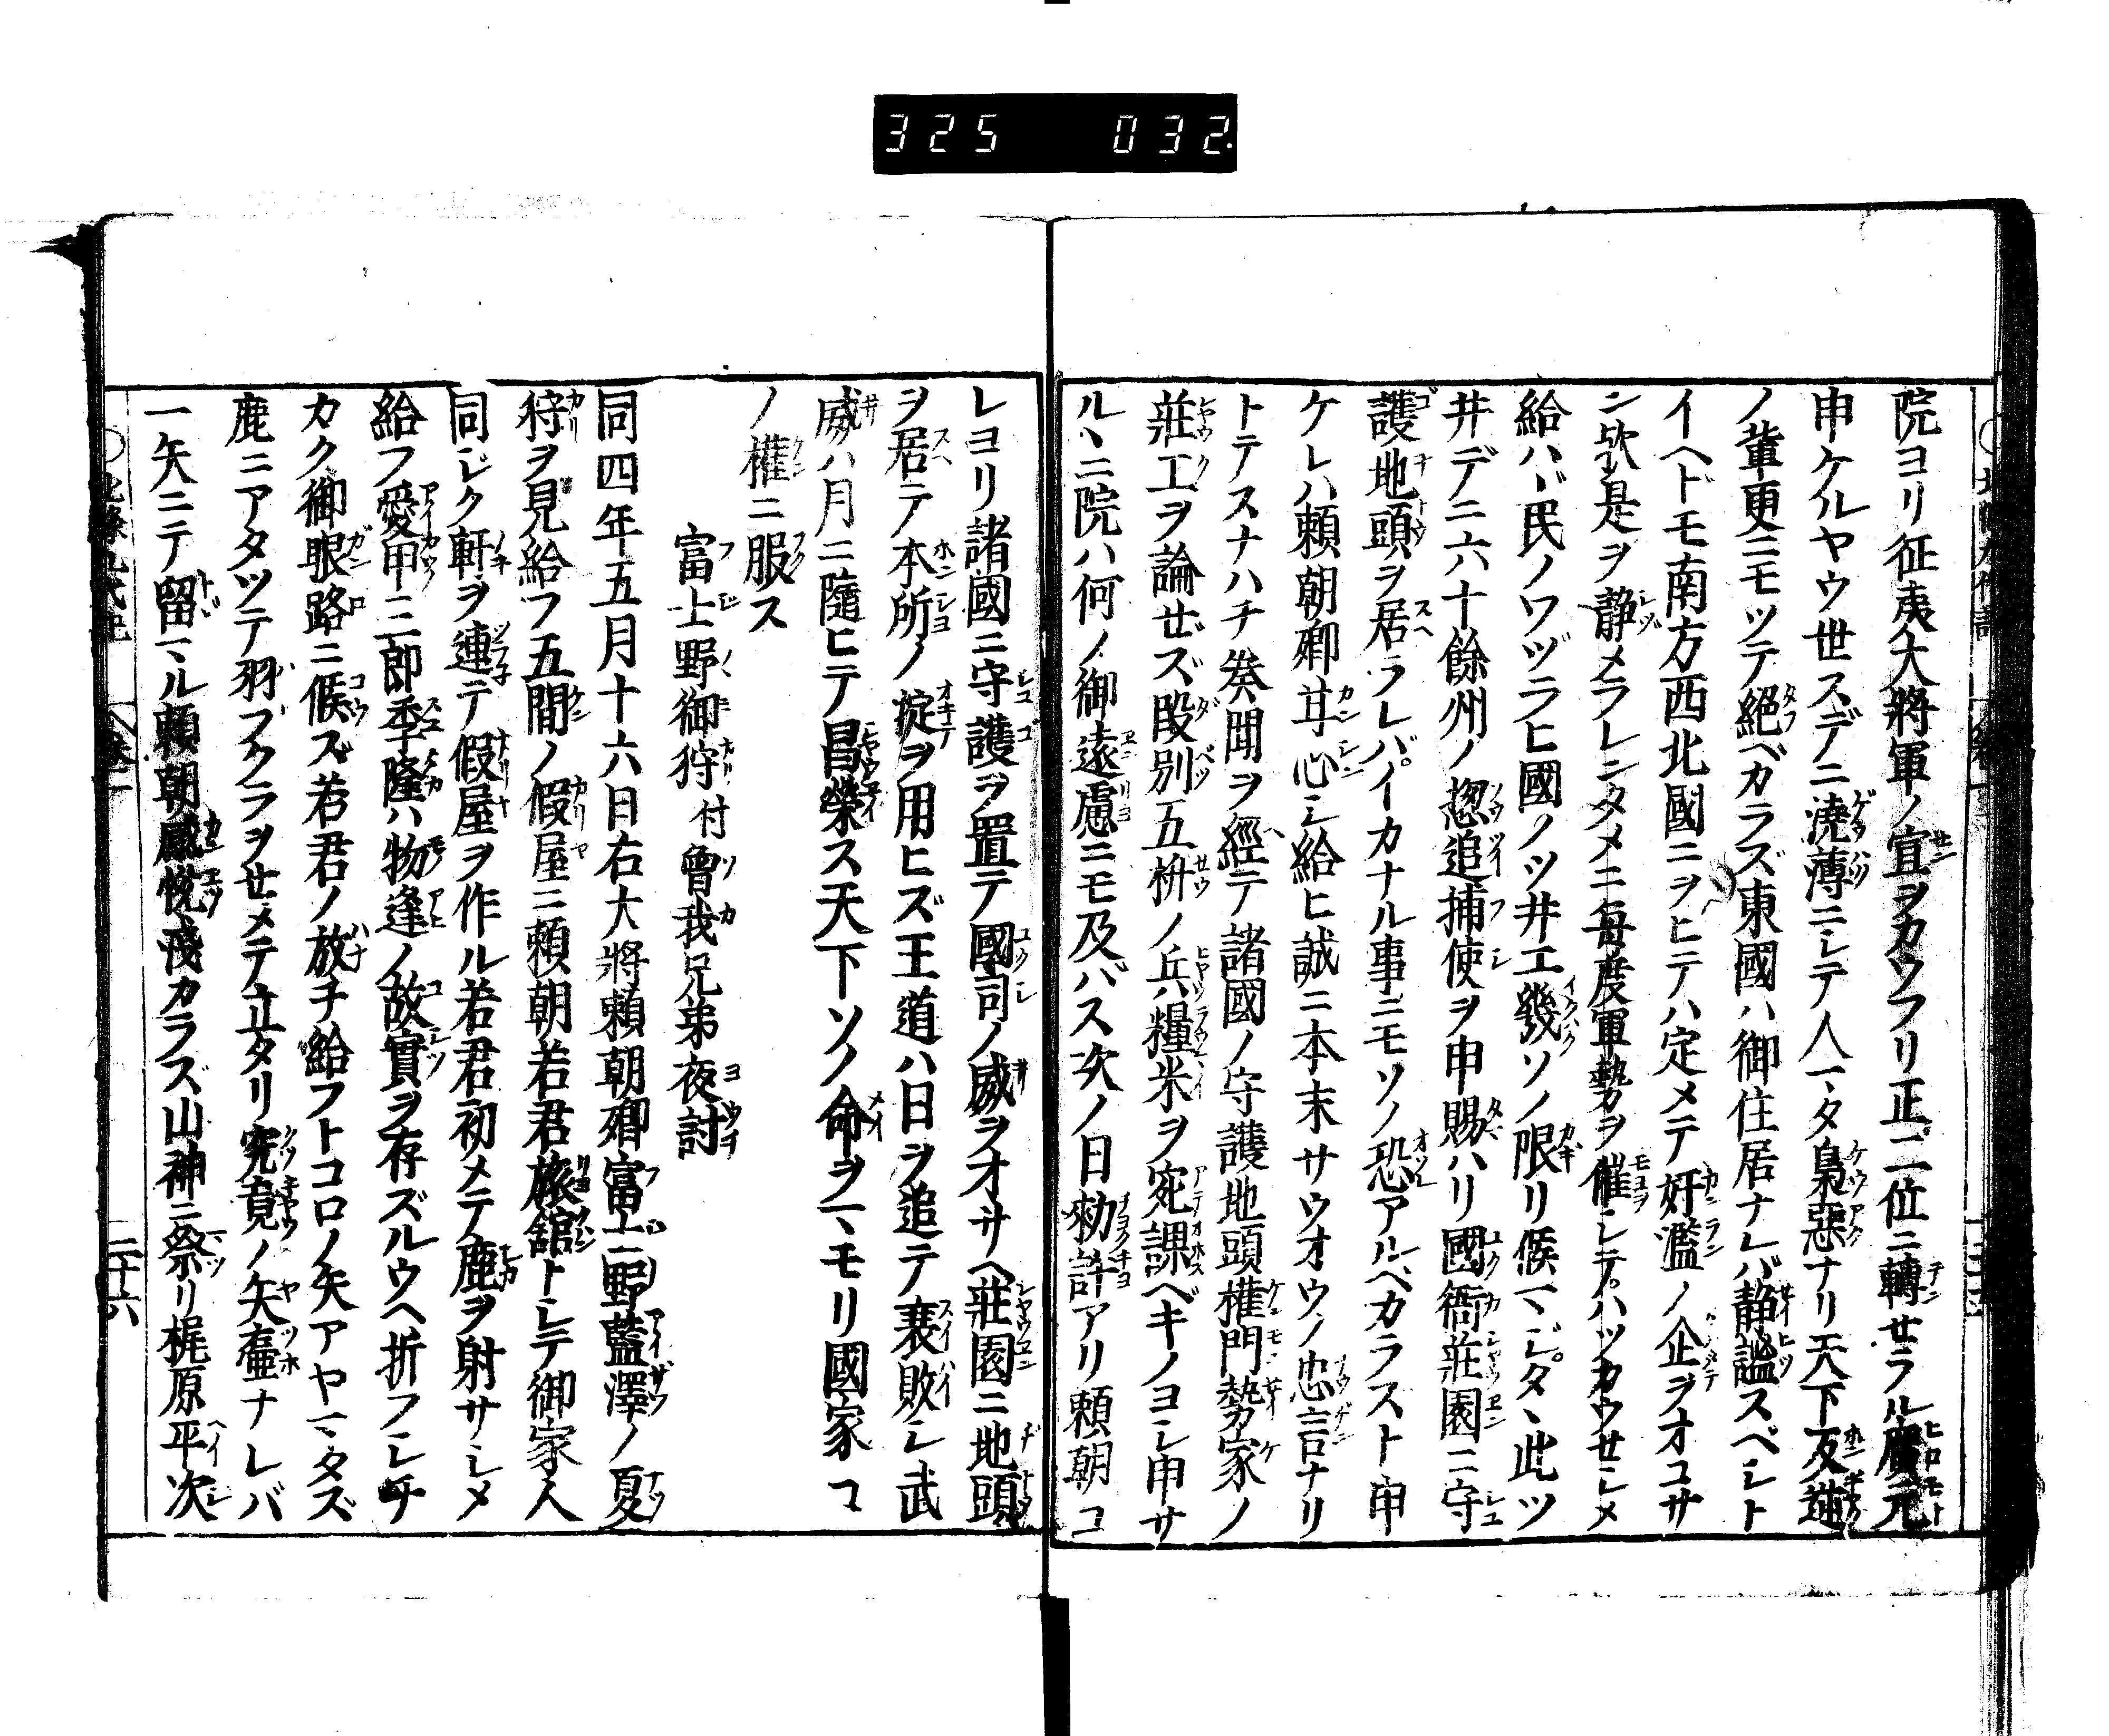 325 032
院ヨリ征夷大將軍ノ宣ヲカウフリ正二位ニ轉ゼラル廣元
申ケルヤウ世スデニ澆薄ニシテ人マタ梟惡ナリ天下反逆
ノ輩更ニモツテ絶ベカラズ東國ハ御住居ナレバ靜謐スベシト
イヘドモ南方西北國ニヲヒテハ定メテ奸濫ノ企ヲオコサ
ン歟是ヲ静メラレンタメニ毎度軍勢ヲ催シテハツカウセシメ
給ハヾ民ノワヅラヒ國ノツ井エ幾ソノ限リ候マジタヽ此ツ
井デニ六十餘州ノ惣追捕使ヲ申賜ハリ國衙莊園ニ守
護地頭ヲ居ラレバイカナル事ニモソノ恐アルベカラスト申
ケレハ頼朝卿甘心シ給ヒ誠ニ本末サウオウノ忠言ナリ
トテスナハチ奏聞ヲ經テ諸國ノ守護地頭權門勢家ノ
莊工ヲ論ぜズ段別五枡ノ兵糧米ヲ宛課ベキノヨシ申サ
ルヽニ院ハ何ノ御遠慮ニモ及バス次ノ日勅許アリ頼朝コ
レヨリ諸國ニ守護ヲ置テ國司ノ威ヲオサヘ莊園ニ地頭
ヲ居テ本所ノ掟ヲ用ヒズ王道ハ日ヲ追テ衰敗シ武
威ハ月ニ隨ヒテ昌榮ス天下ソノ命ヲマモリ國家コ
ノ權ニ服ス
富士野御狩付曾我兄弟夜討
同四年五月十六日右大將頼朝卿富士野藍澤ノ夏
狩ヲ見給フ五間ノ假屋ニ頼朝若君旅舘トシテ御家人
同ジク軒ヲ連テ假屋ヲ作ル若君初メテ鹿ヲ射サシメ
給フ愛甲三郎季隆ハ物逢ノ故實ヲ存ズルウヘ折フシチ
カク御眼路ニ候ズ若君ノ放チ給フトコロノ矢アヤマタズ
鹿ニアタツテ羽ブクラヲせメテ立タリ究竟ノ矢壷ナレバ
一矢ニテ留マル頼朝感悦淺カラズ山神ニ祭リ梶原平次
二十六